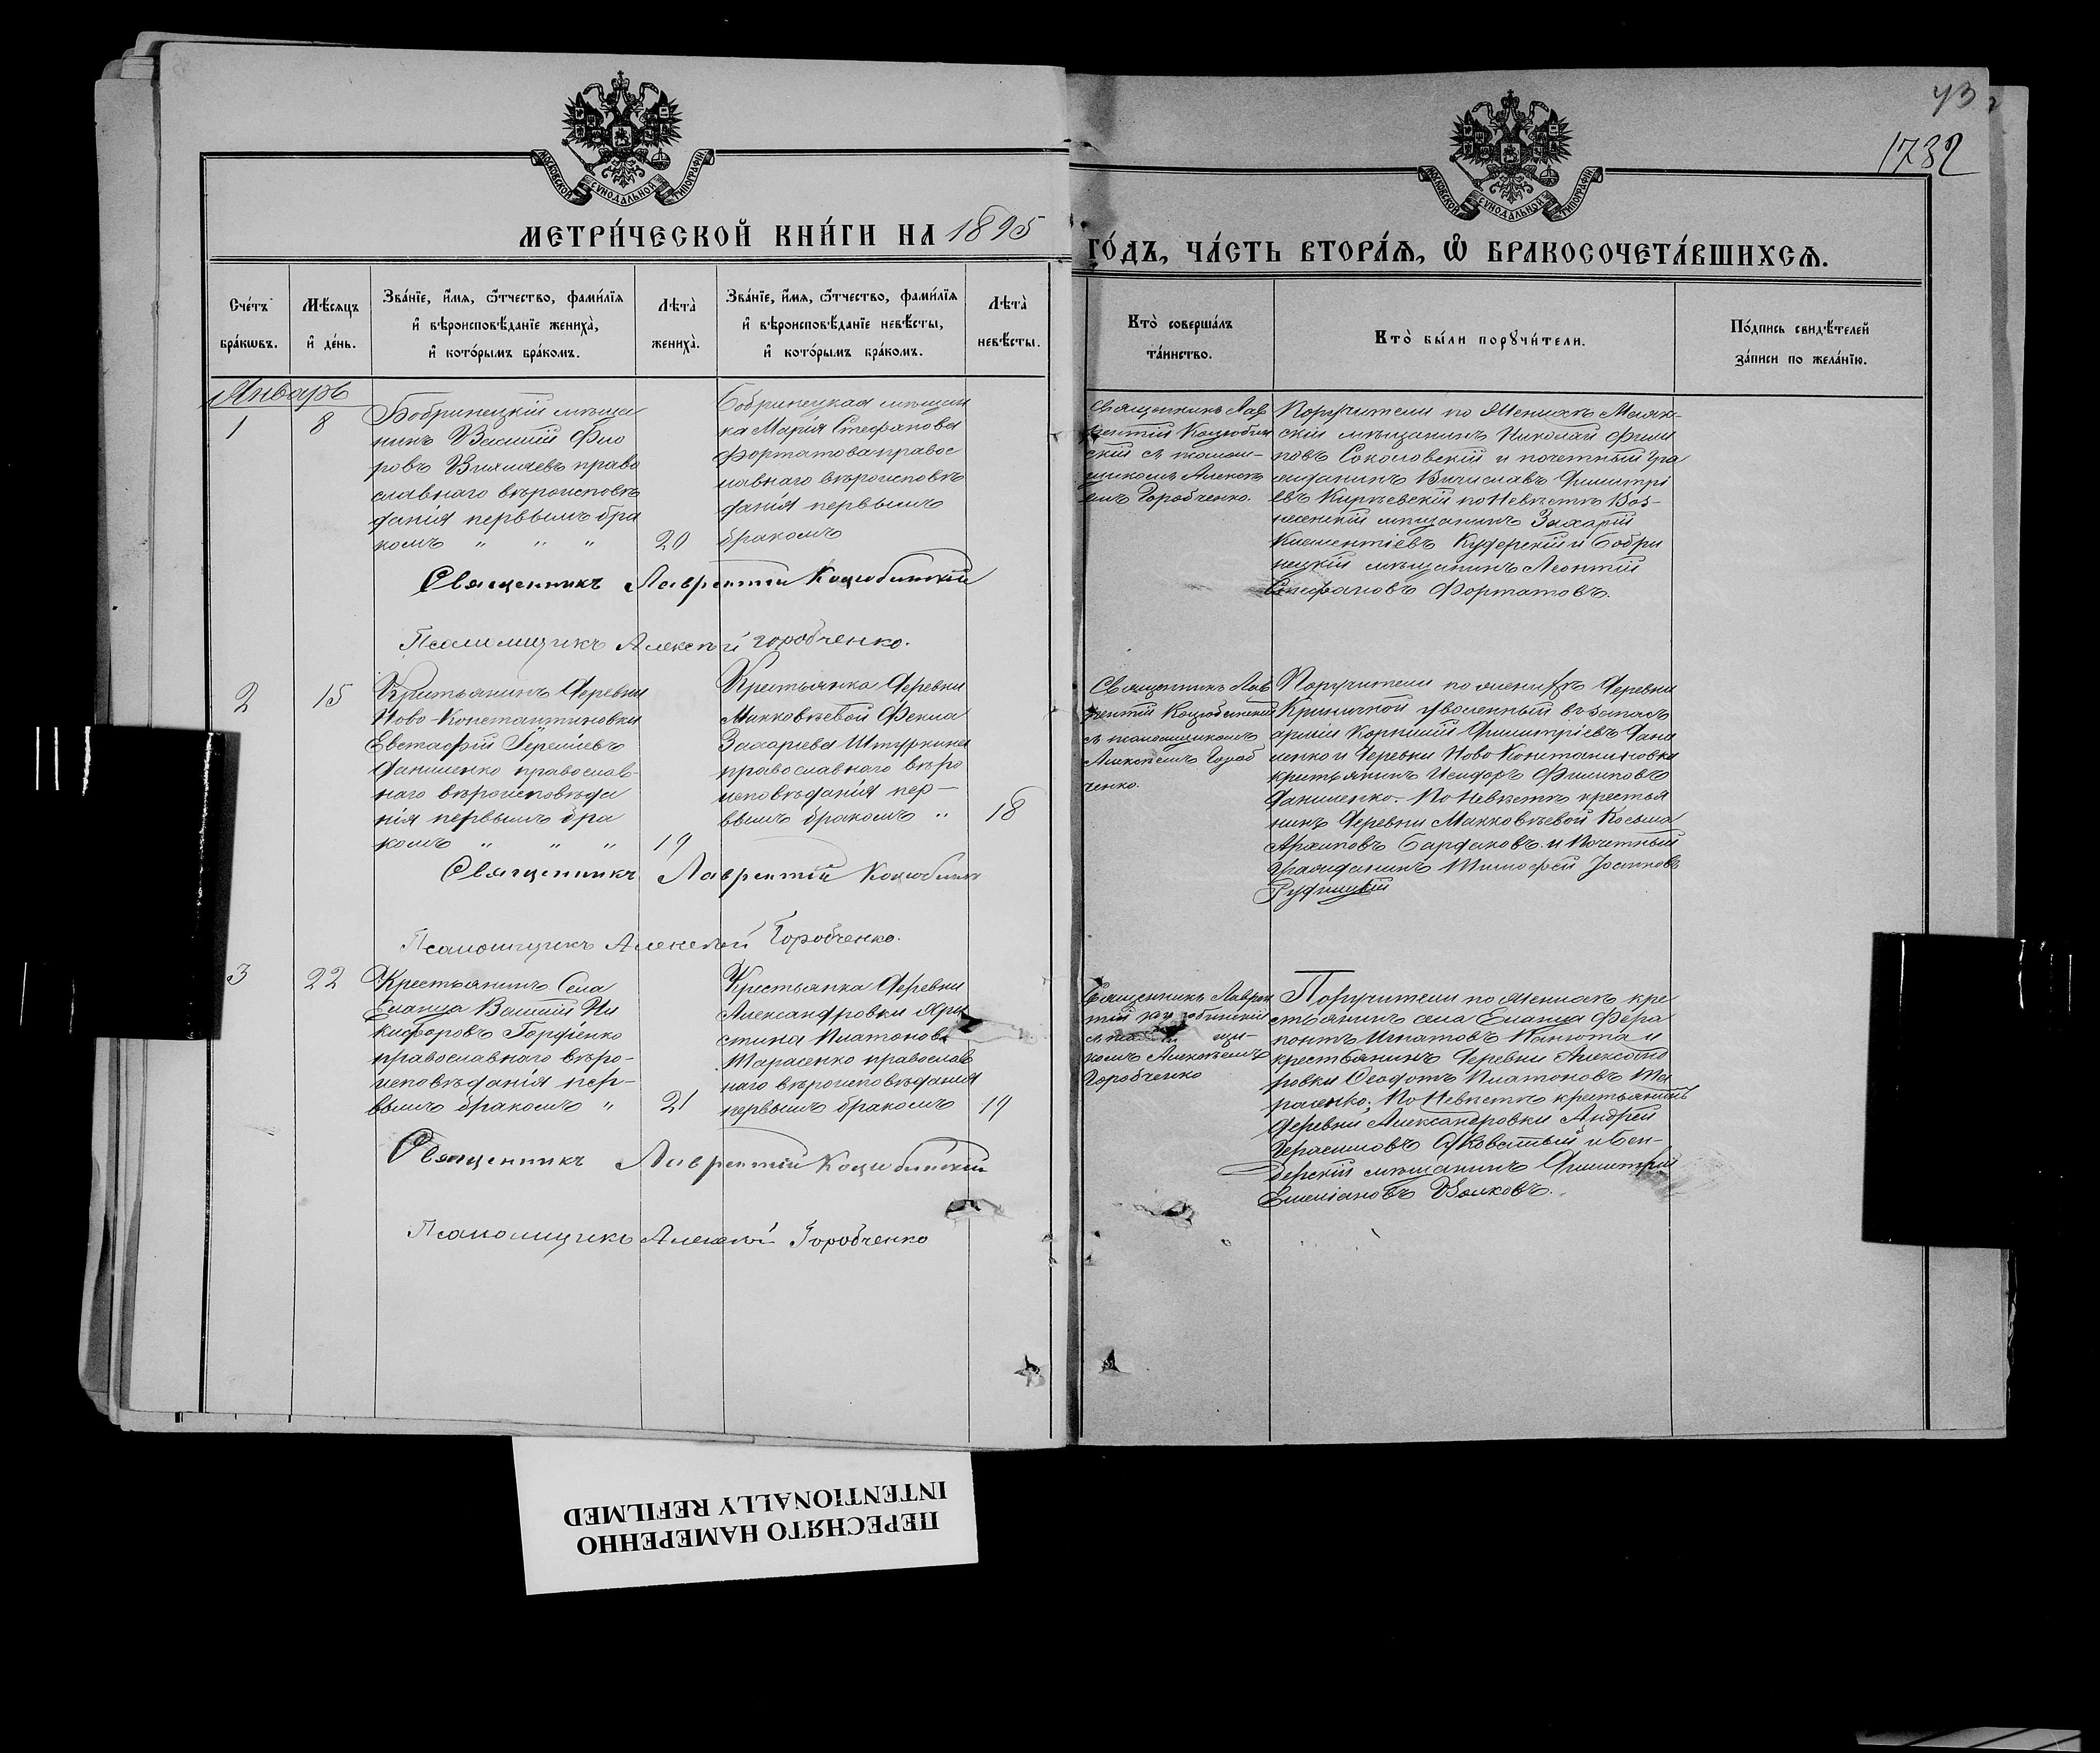 43
1732
МОСКОВСКОЙ СУНОДАЛЬНОЙ ТИПОГРАФІИ
МОСКОВСКОЙ СУНОДАЛЬНОЙ ТИПОГРАФІИ
МЕТРИ́ЧЕСКОЙ КНИ́ГИ НА 1895
ГО́ДЪ, ЧА́СТЬ ВТОРА́Ѧ, Ѽ БРАКОСОЧЕТА́ВШИХСѦ.
Сче́тъ бра́кѡвъ.
Мѣ́сѧцъ и҆ де́нь.
Зва́нїе, и҆́мѧ, ѻ҆́тчество, фами́лїѧ
и҆ вѣроисповѣ́данїе жениха̀,
и҆ кото́рымъ бра́комъ.
Лѣта̀ жениха̀.
Зва́нїе, и҆́мѧ, ѻ҆́тчество, фами́лїѧ
и҆ вѣроисповѣ́данїе невѣ́сты,
и҆ кото́рымъ бра́комъ.
Лѣта̀ невѣ́сты.
Кто̀ соверша́лъ
та́инство.
Кто̀ бы́ли порꙋчи́тели.
По́дпись свидѣ́телей
за́писи по жела́нїю.
Январь
1
8
Бобринецкій мѣща
нинъ Василій Фло
ровъ право
славнаго вѣроисповѣ
данія первымъ бра
комъ " " "
20
Бобринецкая мѣщан
ка Марія Стефанова
Фортатова правос
лавнаго вѣроисповѣ
данія первымъ
бракомъ
Священникъ Лав
рентій Коцюбин
скій съ псалом-
щикомъ Алексѣ
емъ Горобченко.
Поручители по Женихѣ Маяк-
скій мѣщанинъ Николай Фили
повъ Соколовскій и почетный Гра
жданинъ Вячиславъ Димитрі
евъ Кирѣевскій по Невѣстѣ Воз-
несенскій мѣщанинъ Захарій
Климентіевъ Куферскій и Бобри
нецкій мѣщанинъ Леонтій
Стефановъ Фортатовъ.
Священникъ Лаврентій Коцюбинскій
Псаломщикъ Алексѣй Горобченко.
2
15
Крестьянинъ Деревни
Ново-Константиновки
Евстафій Іереміевъ
Даниленко православ-
наго вѣроисповѣда
нія первымъ бра
комъ " " "
19
Крестьянка Деревни
Маккавѣевой Фекла
Захаріева
православнаго вѣро
исповѣданія пер-
вымъ бракомъ "
18
Священникъ Лав
рентій Коцюбинскій
съ псаломщикомъ
Алексѣемъ Гороб
ченко.
Поручители по женихѣ Деревни
Криничной уволенный въ запасъ
арміи Корнилій Димитріевъ Дани
ленко и Деревни Ново Константиновки
крестьянинъ Исидоръ Филиповъ
Даниленко. По Невѣстѣ крестья
нинъ Деревни Маккавѣевой Косьма
Архиповъ Бардаковъ и Почетный
Гражданинъ Тимофей Іосиповъ
Рудницкій
Священникъ Лаврентій Коцюбинск
Псаломщикъ Алексѣй Горобченко.
3
22
Крестьянинъ Села
Еланца Василій Ни
кифоровъ Гордіенко
православнаго вѣро-
исповѣданія пер-
вымъ бракомъ "
21
Крестьянка Деревни
Александровки Хри
стина Платонова
Тарасенко православ
наго вѣроисповѣданія
первымъ бракомъ
19
Священникъ Лаврен
тій Коцюбинскій
щи-
комъ Алексѣемъ
Горобченко
Поручители по Женихѣ кре
стьянинъ села Еланца Фера
понтъ Игнатовъ Канюта и
крестьянинъ Деревни Александ
ровки Феодотъ Платоновъ Та
расенко; По Невѣстѣ крестьянинъ
Деревни Александровки Андрей
Герасимовъ и Бен-
дерскій мѣщанинъ Димитрій
Емеліановъ Волковъ.
Священникъ Лаврентій Коцюбинскій
Псаломщикъ Алексѣй Горобченко
ПЕРЕСНЯТО НАМЕРЕННО
INTENTIONALLY REFILMED